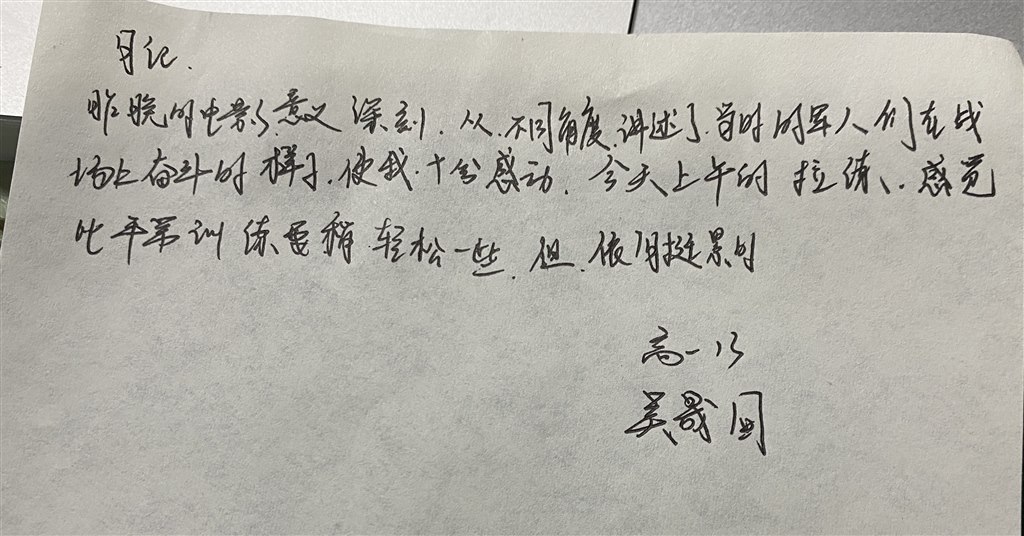 日记.
昨晚的电影意义深刻.从不同角度讲述了当时的军人们在战
场上奋斗的样子.使我十分感动.今天上午的拉练、感觉
比平常训练要稍轻松一些.但.依旧挺累的
高一13
吴晟国